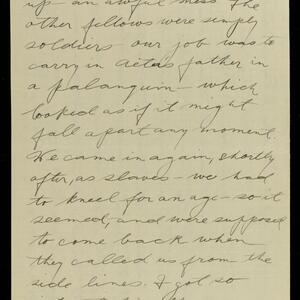 up - an awful mess. The
other fellows were simply
soldiers our job was to
carry in Aïda's father in
a palanquin - which
looked as if it might
fall apart any moment.
We came in again, shortly
after, as slaves - we had
to kneel for an age - so it
seemed, and were supposed
to come back when
they called us from the
side lines. I got so